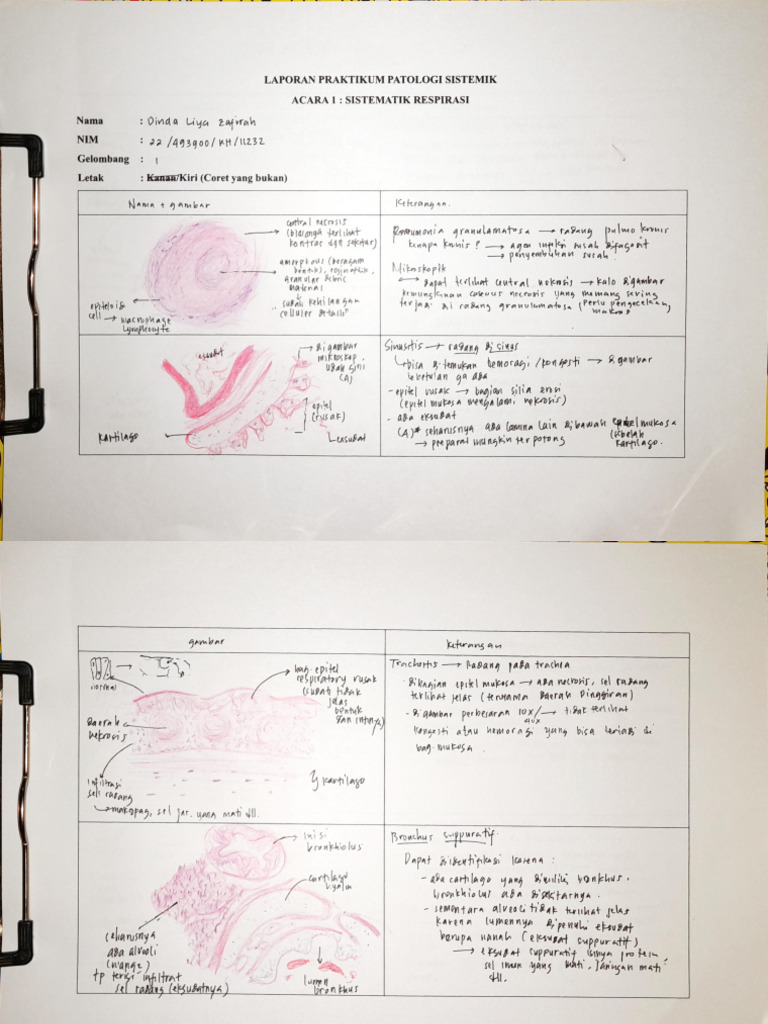 LAPORAN PRAKTIKUM PATOLOGI SISTEMIK
ACARA 1 : SISTEMATIK RESPIRASI
Nama : Dinda Liya Zafirah
NIM : 22/493900/KH/11232
Gelombang : 1
Letak : Kanan/Kiri (Coret yang bukan)
Nama + gambar
Keterangan.
central necrosis
(biasanya terlihat
kontras dgn sekitar)
amorphous (beragam
bentuk), eosinophilic,
granular debris
material
sudah kehilangan
celluler details"
epiteloid
cell → macrophage
lymphocyte
Pneumonia granulamatosa → radang pulmo kronis
kenapa kronis? → agen infeksi susah difagosit
→ penyembuhan susah.
Mikroskopik
Dapat terlihat central nekrosis → kalo digambar
kemungkinan caseous necrosis yang memang sering
terjadi di radang granulomatosa (perlu pengecekan
makros)
exudat
digambar
mikroskop,
udah gini
(A)
epitel
(rusak)
kartilago
exsudat
Sinusitis → radang di sinus
bisa ditemukan hemoragi/kongesti → digambar
kebetulan ga ada
- epitel rusak → bagian silia erosi
(epitel mukosa mengalami nekrosis)
- ada eksudat
(A)* seharusnya ada lamina lain dibawah epitel mukosa
(sebelah
kartilago.
→ preparat mungkin terpotong
gambar
keterangan
normal
bag. epitel
respiratory rusak
(sudat tidak
jelas
bentuk
dan intinya)
Daerah
nekrosis
infiltrasi
sel radang
→ makrofag, sel jar. yang mati dll.
kartilago
Tracheitis → Radang pada trachea
· dibagian epitel mukosa → ada necrosis, sel radang
terlihat jelas (terutama daerah pinggiran)
- digambar perbesaran 10x/ → tidak terlihat
40x
kongesti atau hemoragi yang bisa terjadi di
bag. mukosa.
ini si
bronkhiolus
cartilago
hyalin
seharusnya
ada alveoli
(ruange)
tp terisi infiltrat
sel radang (eksudatnya)
lumen
bronkhus
Bronchus suppuratif.
Dapat diidentifikasi karena :
- ada cartilago yang dimiliki bronkhus.
bronkhiolus ada disekitarnya.
- sementara alveoli tidak terlihat jelas
karena lumennya dipenuhi eksudat
berupa nanah (eksudat suppuratif)
→ eksudat suppuratif isinya protein
sel imun yang mati, jaringan mati
dll.